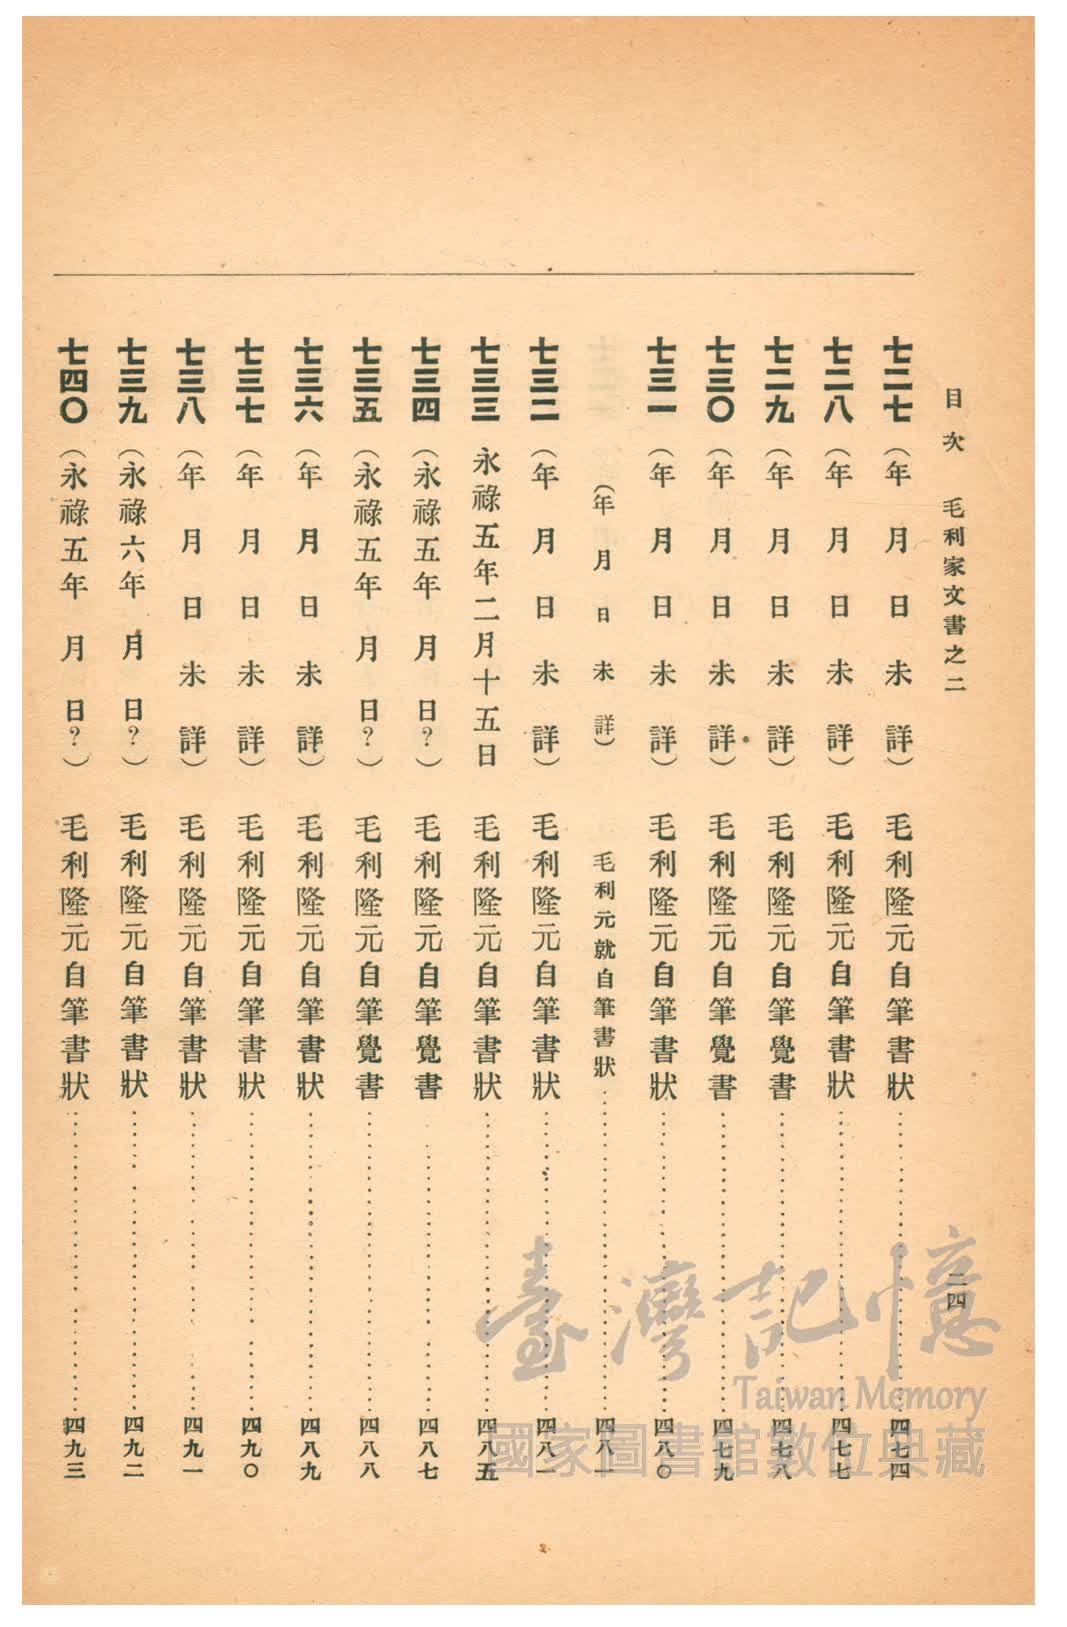 目次　毛利家文書之二　二四
七二七（年　月　日　未　詳）毛利隆元自筆書狀……四七四
七二八（年　月　日　未　詳）毛利隆元自筆書狀……四七七
七二九（年　月　日　未　詳）毛利隆元自筆覺書……四七八
七三〇（年　月　日　未　詳）毛利隆元自筆覺書……四七九
七三一（年　月　日　未　詳）毛利隆元自筆書狀……四八〇
（年　月　日　未　詳）毛利元就自筆書狀……四八一
七三二（年　月　日　未　詳）毛利隆元自筆書狀……四八一
七三三　永祿五年二月十五日　毛利隆元自筆書狀……四八五
七三四（永祿五年　月　日？）毛利隆元自筆覺書……四八七
七三五（永祿五年　月　日？）毛利隆元自筆覺書……四八八
七三六（年　月　日　未　詳）毛利隆元自筆書狀……四八九
七三七（年　月　日　未　詳）毛利隆元自筆書狀……四九〇
七三八（年　月　日　未　詳）毛利隆元自筆書狀……四九一
七三九（永祿六年　月　日？）毛利隆元自筆書狀……四九二
七四〇（永祿五年　月　日？）毛利隆元自筆書狀……四九三
臺灣記憶
Taiwan Memory
國家圖書館數位典藏